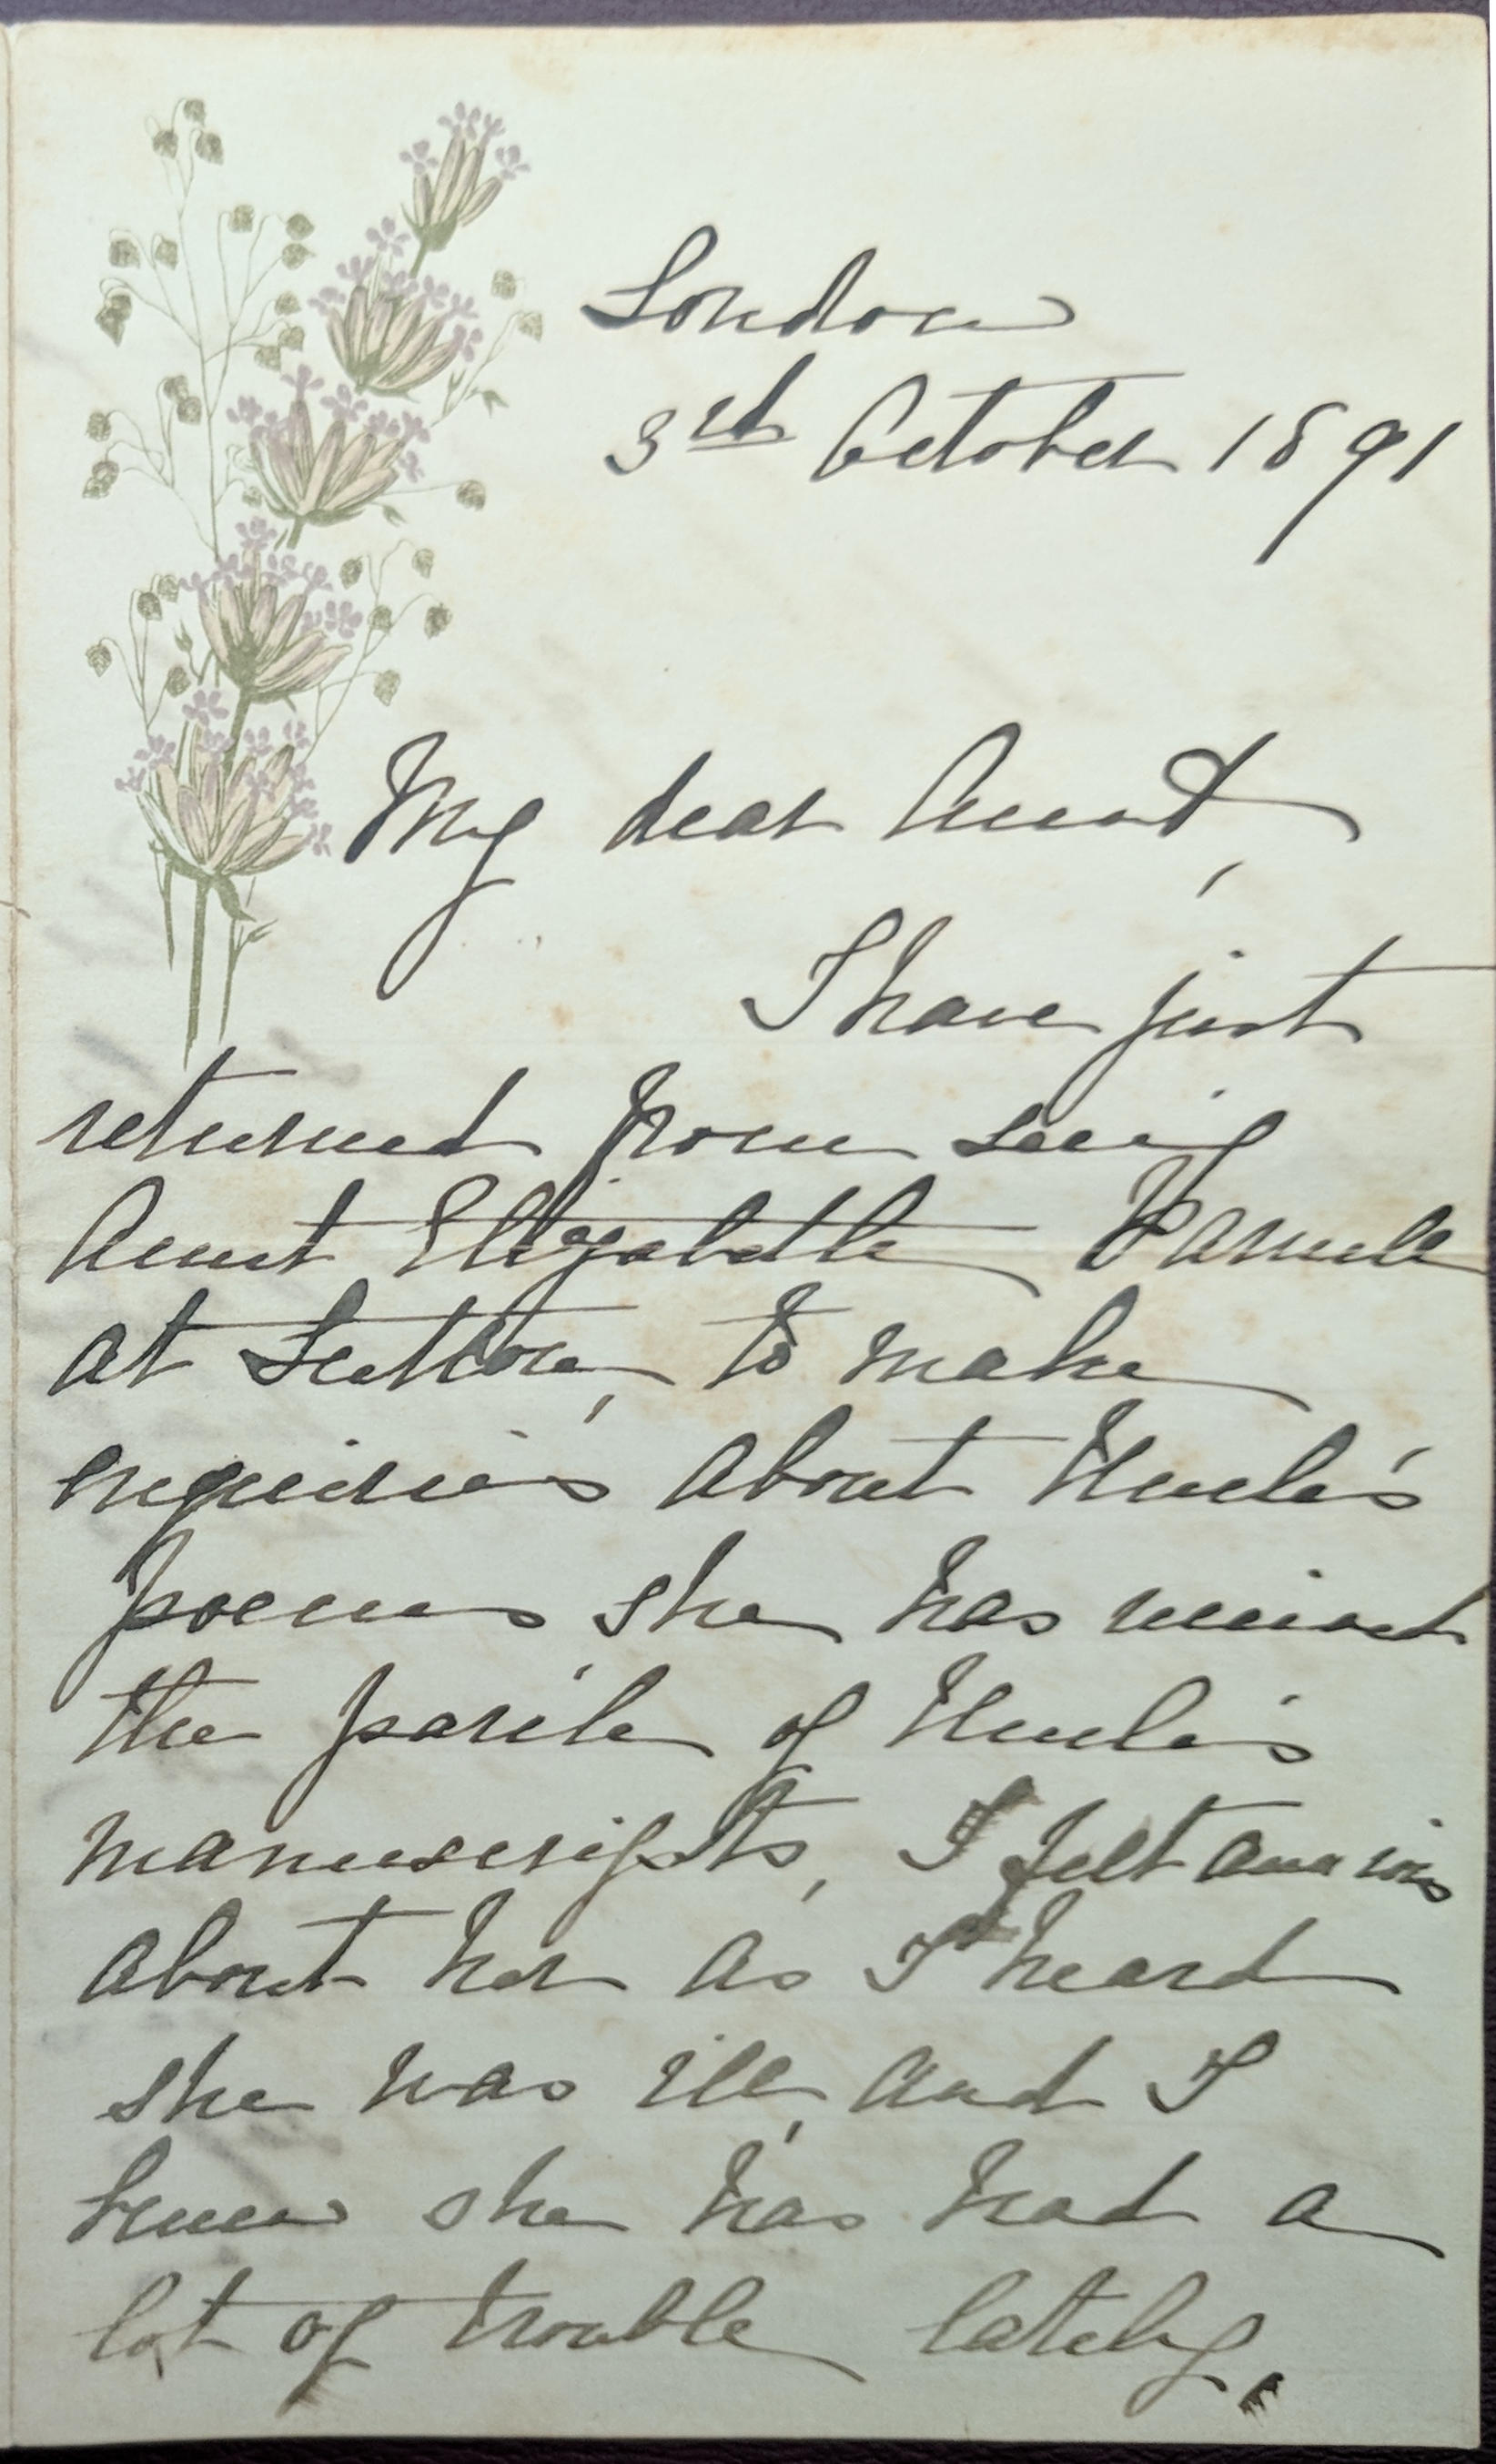 London
3rd October 1891
My dear Aunt,
I have just
returned from seeing
Aunt Elizabeth
at Sutton, to make
enquiries about Uncle's
poems she has
the parcle of Uncle's
manuscripts, I felt anxious
about her as I heard
she was ill, and I
knew she has had a
lot of trouble lately.